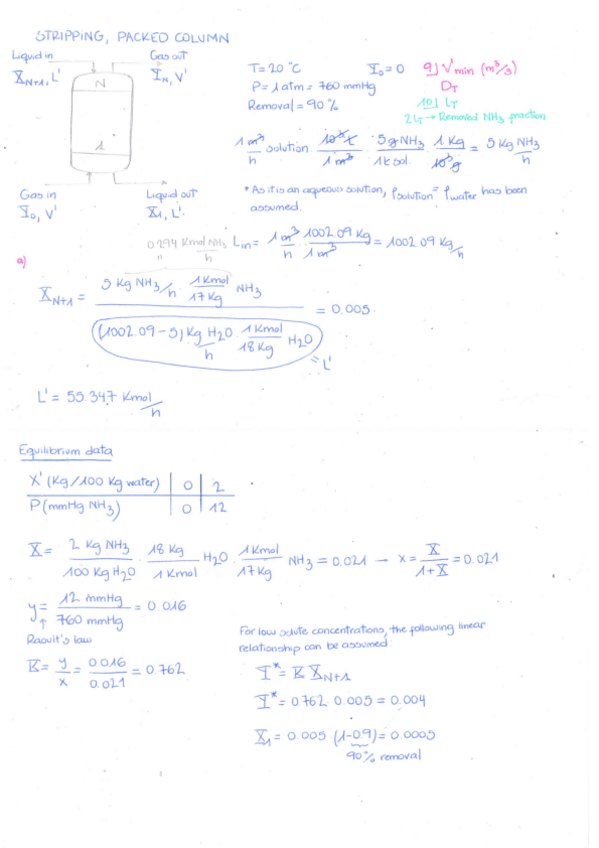 STRIPPING, PACKED COLUMN
Liquid in
Gas out
X̄N+1, L'
ȲN, V'
N
1
Gas in
Liquid out
Ȳ0, V'
X̄1, L'
T= 20 °C
Ȳ0 = 0
a) V'min (m³/s)
P= 1 atm = 760 mmHg
DT
Removal = 90 %
b) LT
2LT → Removed NH3 fraction
1 m³/h solution · 10³ℓ/1 m³ · 5 g NH3/1ℓ sol. · 1 Kg/10³ g = 5 Kg NH3/h
* As it is an aqueous solution, ρsolution = ρwater has been
assumed.
Lin = 1 m³/h · 1002.09 Kg/1 m³ = 1002.09 Kg/h
0.294 Kmol NH3/h
"
a)
X̄N+1 = (5 Kg NH3/h · 1 Kmol/17 Kg NH3) / ((1002.09 - 5) Kg H2O/h · 1 Kmol/18 Kg H2O) = 0.005.
= L'
L' = 55.347 Kmol/h
Equilibrium data
X' (Kg/100 Kg water) | 0 | 2
P (mmHg NH3) | 0 | 12
X̄ = 2 Kg NH3/100 Kg H2O · 18 Kg/1 Kmol H2O · 1 Kmol/17 Kg NH3 = 0.021 → x = X̄/1+X̄ = 0.021
y = 12 mmHg/760 mmHg = 0.016
↑
Raoult's law
K = y/x = 0.016/0.021 = 0.762
For low solute concentrations, the following linear
relationship can be assumed:
Ȳ* = K X̄N+1
Ȳ* = 0.762 · 0.005 = 0.004
X̄1 = 0.005 · (1-0.9) = 0.0005
90% removal